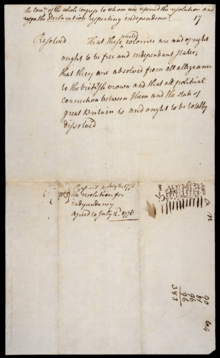 the com.ee of the whole congress to whom was referred the resolution and
the Declaration respecting independence.
17
Resolved That these united colonies are and of right
ought to be free and independant states;
that they are absolved from all allegiance
to the british crown and that all political
connection between them and the state of
great Britain is and ought to be totally
dissolved
resolution for
independancy
agreed to July 2.d 1776